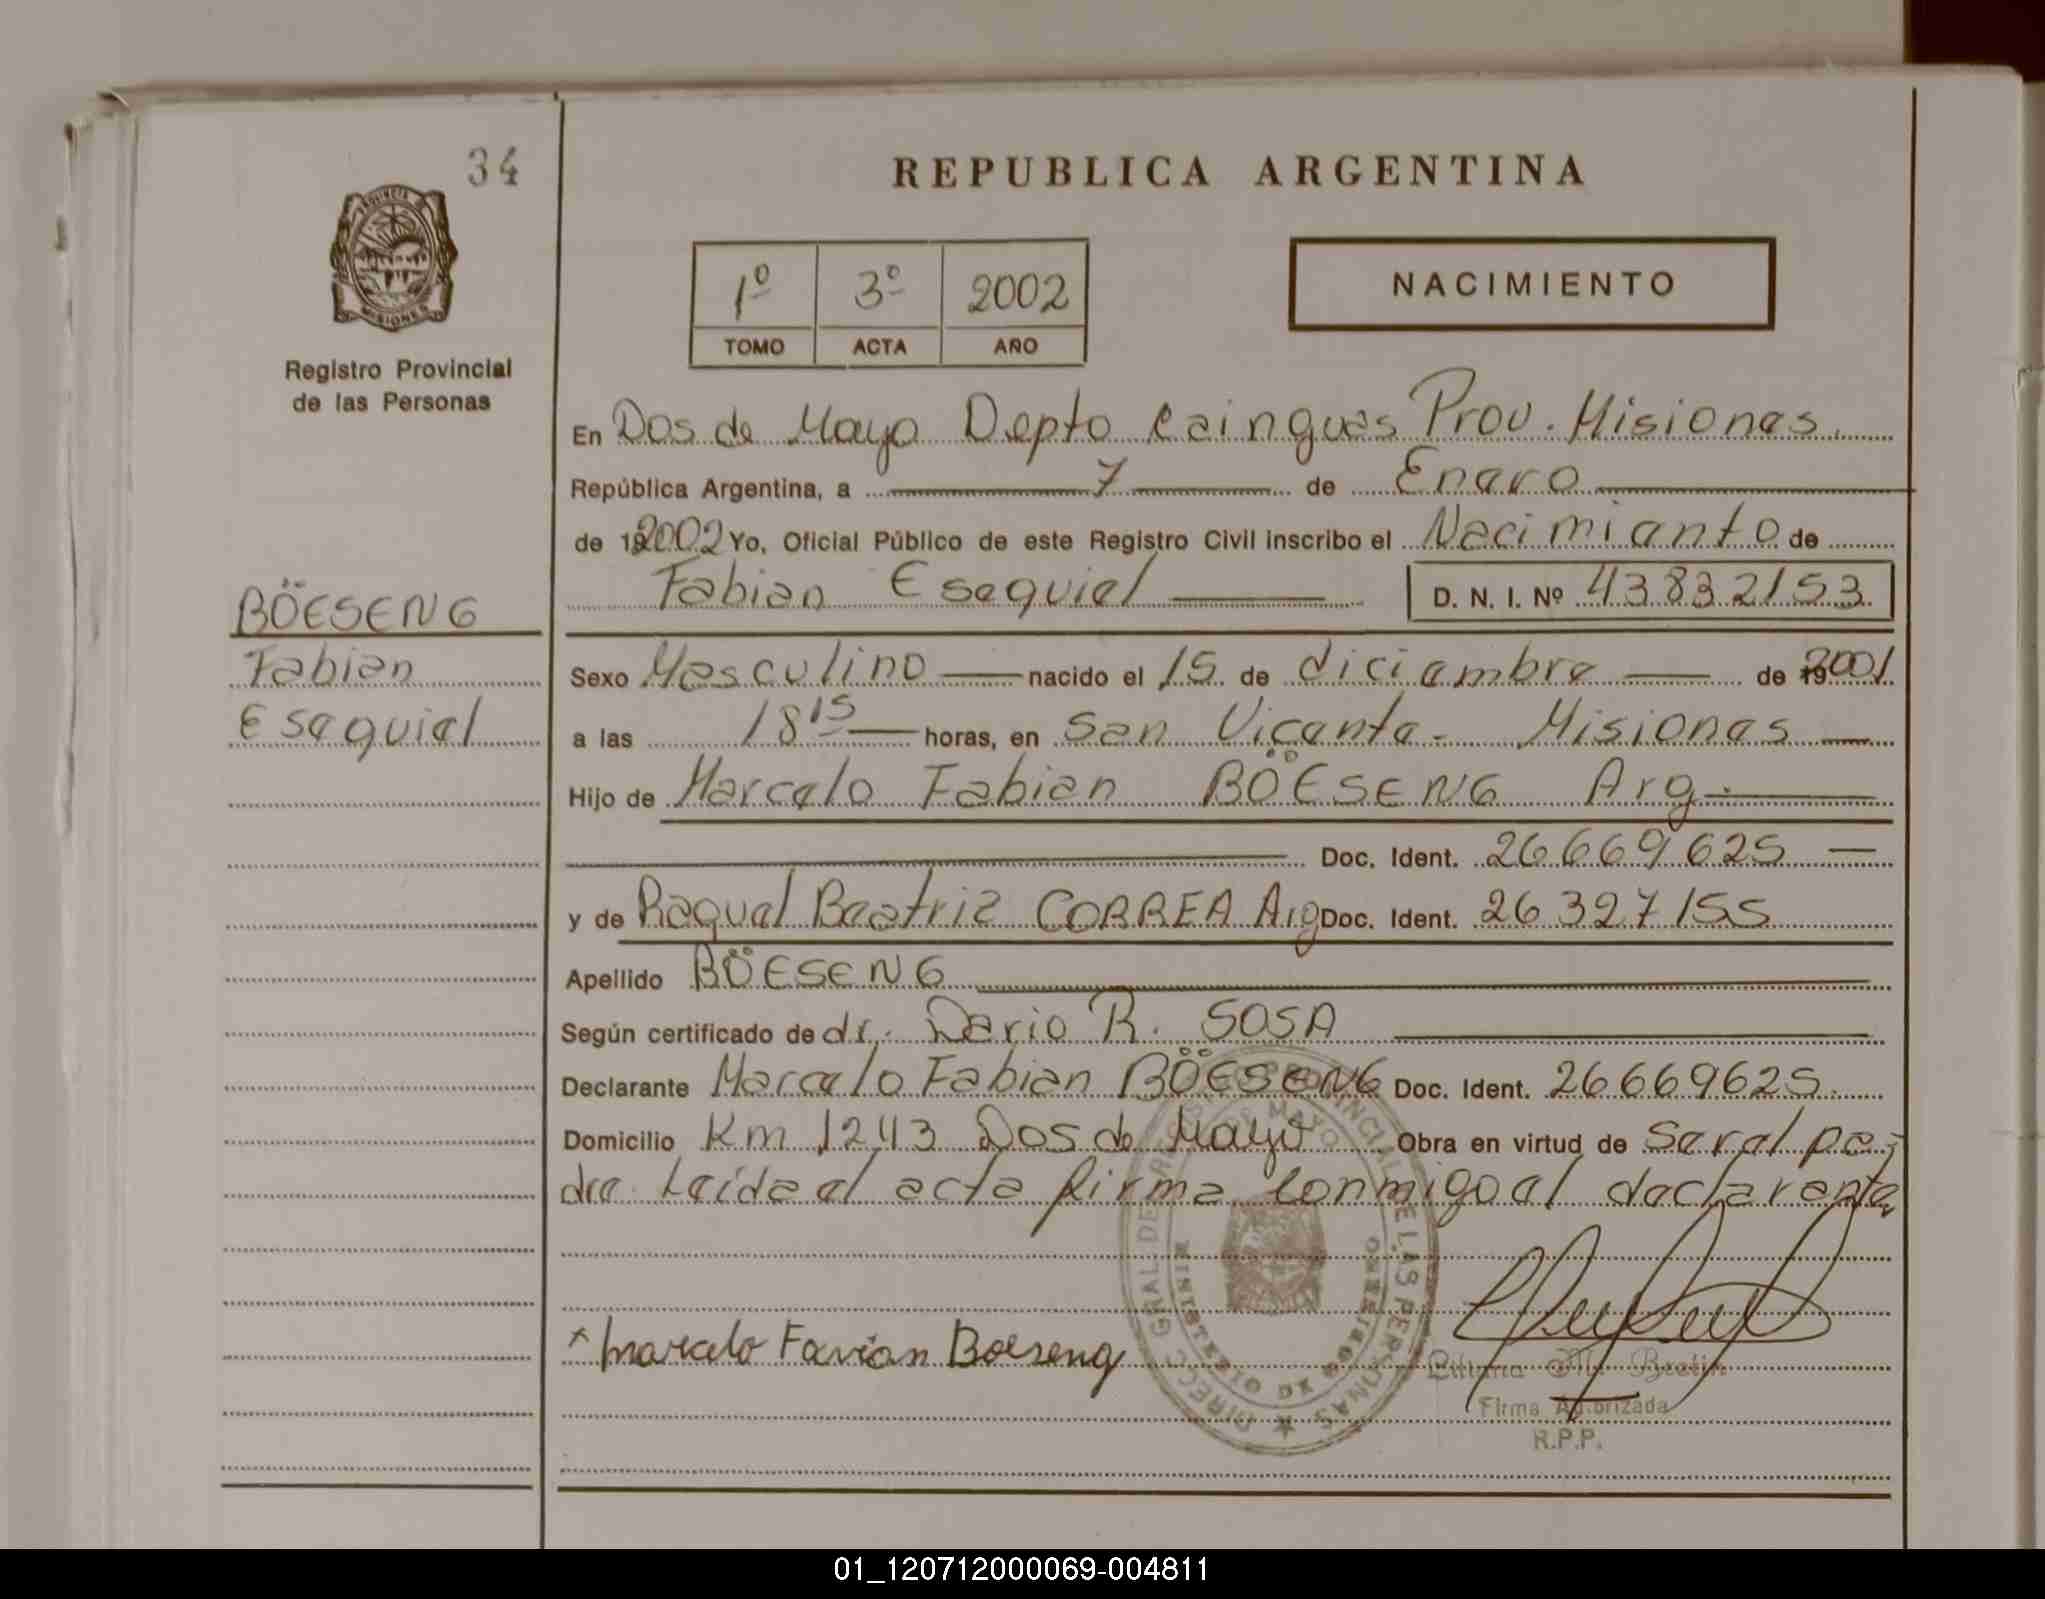 34
REPUBLICA ARGENTINA
PROVINCIA DE
MISIONES
1º 3º 2002
TOMO ACTA AÑO
NACIMIENTO
Registro Provincial
de las Personas
En Dos de Mayo Depto Cainguas Prov. Misiones
República Argentina, a 7 de Enero
de 192002 Yo, Oficial Público de este Registro Civil inscribo el Nacimiento de
Fabian Esequiel D. N. I. Nº 43832153
BÖESENG
Fabian
Esequiel
Sexo Masculino nacido el 15 de diciembre de 192001
a las 18 15 horas, en San Vicente - Misiones
Hijo de Marcelo Fabian BÖESENG Arg.
Doc. Ident. 26669625
y de Raquel Beatriz CORREA Arg Doc. Ident. 26327155
Apellido BÖESENG
Según certificado de dr. Dario R. SOSA
Declarante Marcelo Fabian BÖESENG Doc. Ident. 26669625
Domicilio Km 1243 Dos de Mayo Obra en virtud de ser el pa-
dre. Leída el acta firma conmigo el declarante
DIRECC. GRAL DE REG. PROVINCIAL DE LAS PERSONAS
DOS DE MAYO
MINISTERIO DE GOBIERNO
* Marcelo Favian Boeseng
Liliana M. Bretin
Firma Autorizada
R.P.P.
01_120712000069-004811